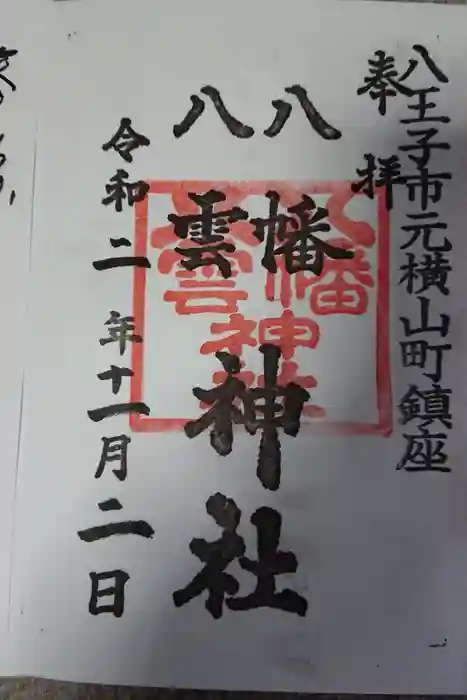 八王子市元横山町鎮座
奉拝
八幡
八雲
神社
令和二年十一月二日
八幡
八雲
神社